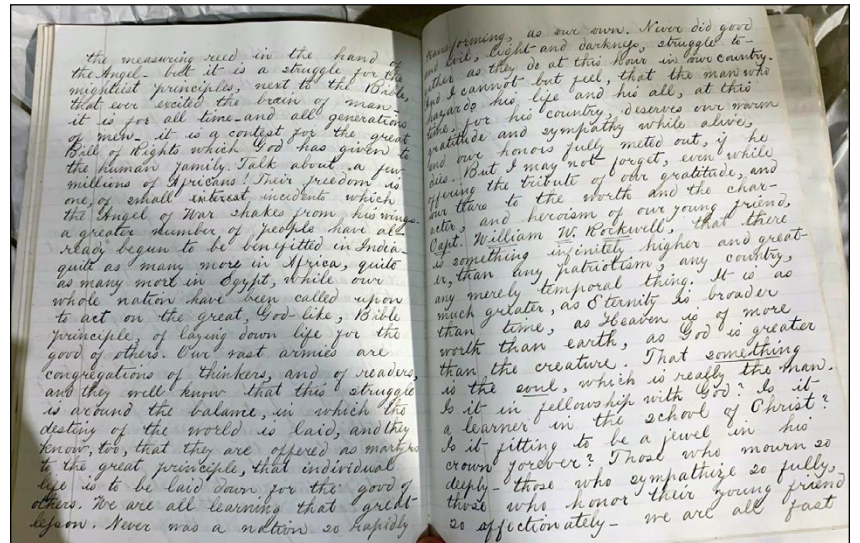 the measuring reed in the hand of
the Angel - but it is a struggle for the
mightiest principles, next to the Bible,
that ever excited the brain of man -
it is for all time - and all generations
of men - it is a contest for the great
Bill of Rights which God has given to
the human family. Talk about a few
millions of Africans! Their freedom is
one, of small interest, incidents which
the Angel of War shakes from his wings -
a greater number of people have al-
ready begun to be benifitted in India
quite as many more in Africa, quite
as many more in Egypt, while our
whole nation have been called upon
to act on the great, God-like, Bible
principle, of laying down life for the
good of others. Our vast armies are
congregations of thinkers, and of readers,
and they well know that this struggle
is around the balance, in which the
destiny of the world is laid, and they
know, too, that they are offered as martyrs
to the great principle, that individual
life is to be laid down for the good of
others. We are all learning that great
lesson. Never was a nation so rapidly
transforming, as our own. Never did good
and evil, light and darkness, struggle to-
gether as they do at this hour in our country.
And I cannot but feel, that the man who
hazards his life and his all, at this
time, for his country, deserves our warm
gratitude and sympathy while alive,
and our honors fully meted out, if he
dies. But I may not forget, even while
offering the tribute of our gratitude, and
our tears to the worth and the char-
acter, and heroism of our young friend,
Capt. William W. Rockwell, that there
is something infinitely higher and great-
er, than any patriotism, any country,
any merely temporal thing. It is as
much greater, as Eternity is broader
than time, as Heaven is of more
worth than earth, as God is greater
than the creature. That something
is the soul, which is really the man.
Is it in fellowship with God? Is it
a learner in the school of Christ?
Is it fitting to be a jewel in his
crown forever? Those who mourn so
deeply - those who sympathize so fully,
those who honor their young friend
so affectionately - we are all fast